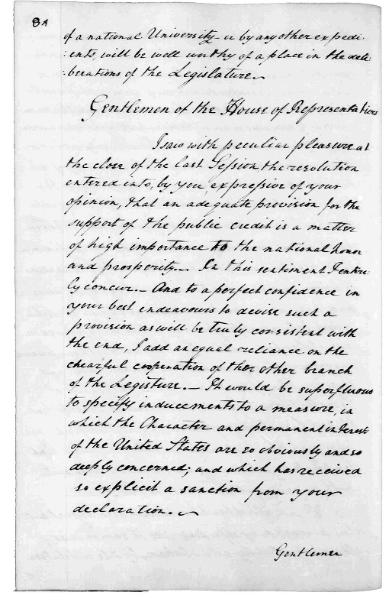 8
of a national University, or by any other expedi-
-ents, will be well worthy of a place in the deli-
-berations of the Legislature.
Gentlemen of the House of Representatives
I saw with peculiar pleasure at
the close of the last Session the resolution
entered into, by you, expressive of your
opinion, that an adequate provision for the
support of the public credit is a matter
of high importance to the national honor
and prosperity. In this sentiment I entire-
ly concur. And to a perfect confidence in
your best endeavours to devise such a
provision as will be truly consistent with
the end, I add an equal reliance on the
chearful cooperation of the other branch
of the Legisture. It would be superfluous
to specify inducements to a measure, in
which the Character and permanent interests
of the United States are so obviously and so
deeply concerned; and which has received
so explicit a sanction from your
declaration.
Gentlemen